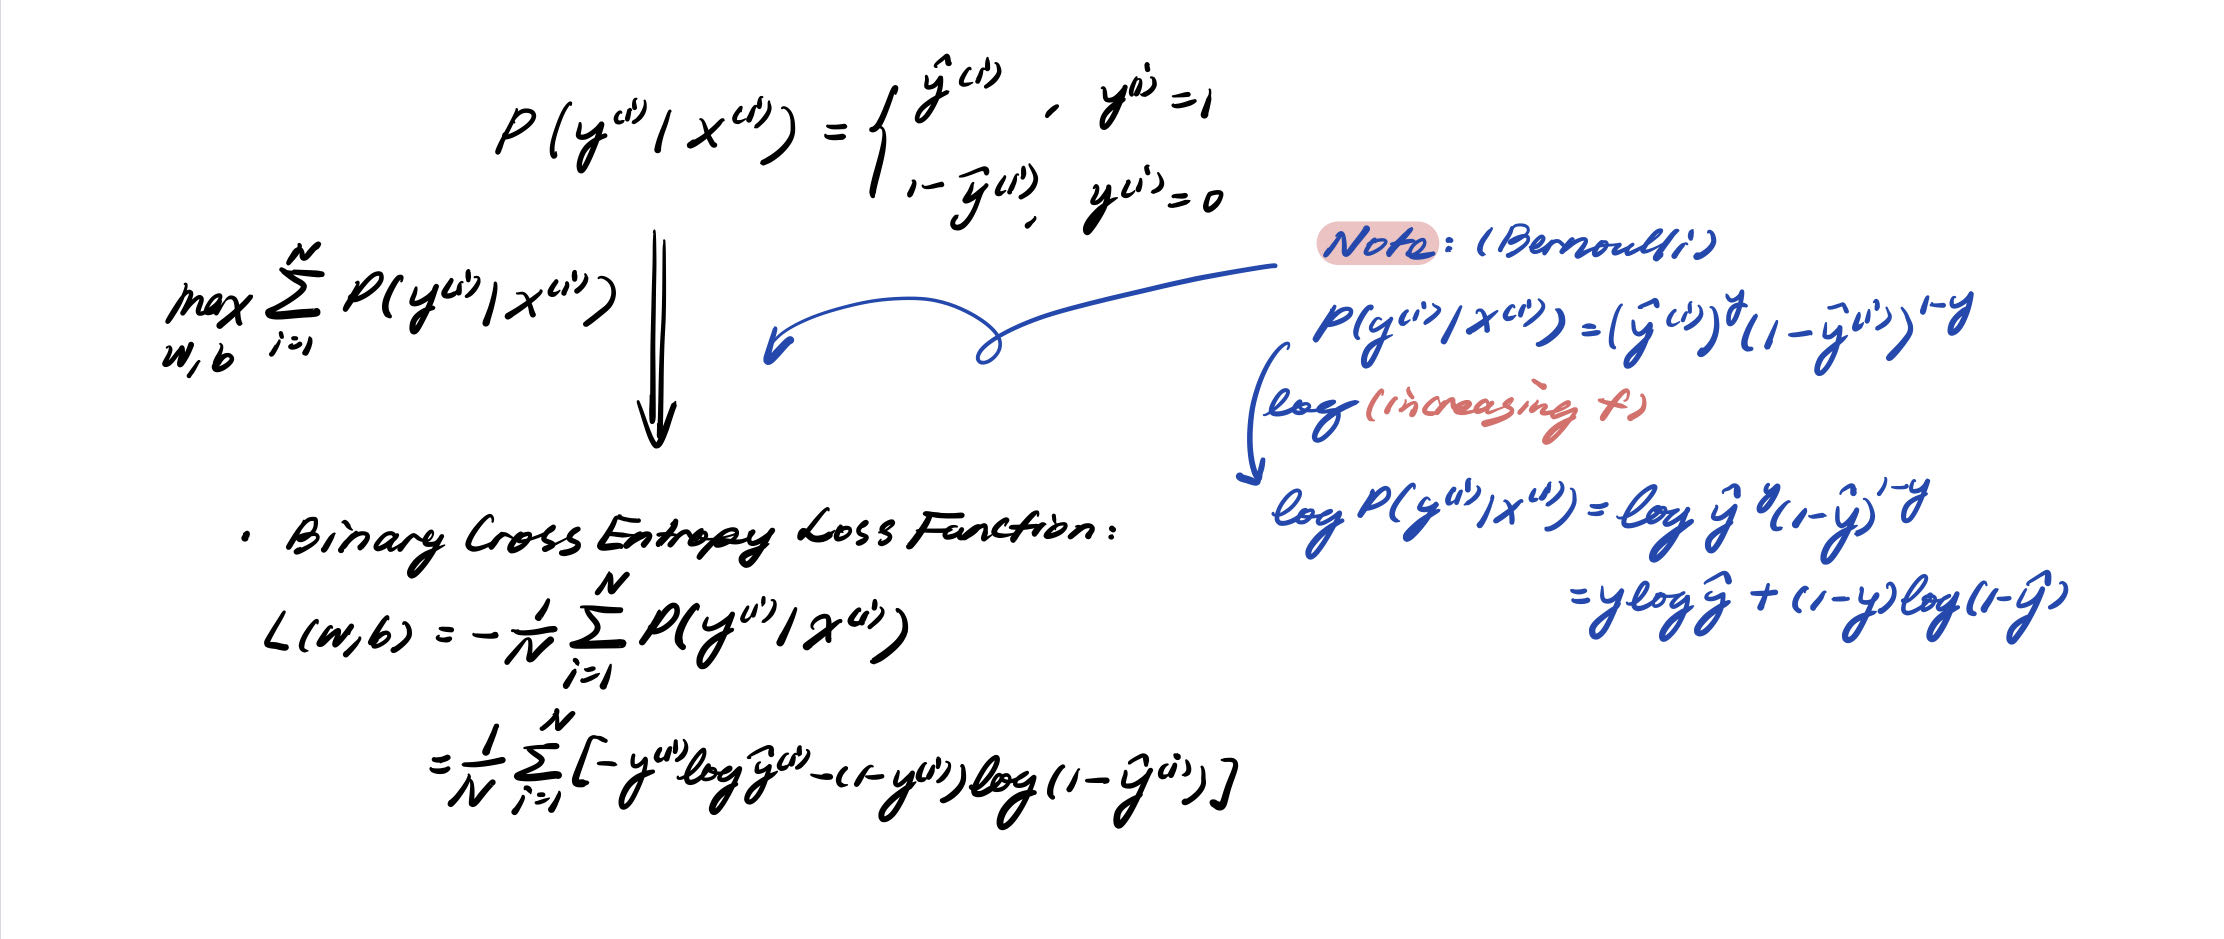 P(y⁽ⁱ⁾ | x⁽ⁱ⁾) = { ŷ⁽ⁱ⁾ , y⁽ⁱ⁾ = 1
1 - ŷ⁽ⁱ⁾, y⁽ⁱ⁾ = 0
max_{w, b} Σ_{i=1}^{N} P(y⁽ⁱ⁾ | x⁽ⁱ⁾)
Note: (Bernoulli)
P(y⁽ⁱ⁾ | x⁽ⁱ⁾) = (ŷ⁽ⁱ⁾)^y (1 - ŷ⁽ⁱ⁾)^{1-y}
log (increasing f)
log P(y⁽ⁱ⁾ | x⁽ⁱ⁾) = log ŷ^y (1 - ŷ)^{1-y}
= y log ŷ + (1-y) log (1-ŷ)
· Binary Cross Entropy Loss Function:
L(w, b) = - 1/N Σ_{i=1}^{N} P(y⁽ⁱ⁾ | x⁽ⁱ⁾)
= 1/N Σ_{i=1}^{N} [- y⁽ⁱ⁾ log ŷ⁽ⁱ⁾ - (1 - y⁽ⁱ⁾) log (1 - ŷ⁽ⁱ⁾)]